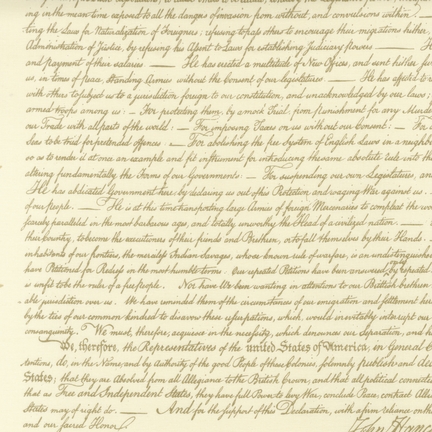 ing in the mean time exposed to all the dangers of invasion from without, and convulsions within. —
ting the Laws for Naturalization of Foreigners; refusing to pass others to encourage their migrations hither,
Administration of Justice, by refusing his Assent to Laws for establishing Judiciary powers. — He
and payment of their salaries. — He has erected a multitude of New Offices, and sent hither
us, in times of peace, Standing Armies without the Consent of our legislatures. — He has affected to
with others to subject us to a jurisdiction foreign to our constitution, and unacknowledged by our laws;
armed troops among us: — For protecting them, by a mock Trial, from punishment for any Murders
our Trade with all parts of the world: — For imposing Taxes on us without our Consent: — For
Seas to be tried for pretended offences: — For abolishing the free System of English Laws in a neighb
so as to render it at once an example and fit instrument for introducing the same absolute rule into the
altering fundamentally the Forms of our Governments: — For suspending our own Legislatures, and
He has abdicated Government here, by declaring us out of his Protection and waging War against us. —
of our people. — He is at this time transporting large Armies of foreign Mercenaries to compleat the wo
scarcely paralleled in the most barbarous ages, and totally unworthy the Head of a civilized nation. —
their Country, to become the executioners of their friends and Brethren, or to fall themselves by their Hands.
inhabitants of our frontiers, the merciless Indian Savages, whose known rule of warfare, is an undistinguished
have Petitioned for Redress in the most humble terms: Our repeated Petitions have been answered by repeated
is unfit to be the ruler of a free people. Nor have We been wanting in attentions to our Brittish brethren.
able jurisdiction over us. We have reminded them of the circumstances of our emigration and settlement here.
by the ties of our common kindred to disavow these usurpations, which, would inevitably interrupt our
consanguinity. We must, therefore, acquiesce in the necessity, which denounces our Separation, and h
We, therefore, the Representatives of the united States of America, in General C
tentions, do, in the Name, and by Authority of the good People of these Colonies, solemnly publish and dec
States; that they are Absolved from all Allegiance to the British Crown, and that all political connection
that as Free and Independent States, they have full Power to levy War, conclude Peace, contract Alliances
States may of right do. — And for the support of this Declaration, with a firm reliance on the
and our sacred Honor.
John Hanc